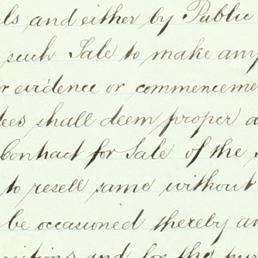 ls and either by Public
such Sale to make any
or evidence or commenceme
tees shall deem proper a
Contract for Sale of the
to resell same without
be occasioned thereby an
and for the pur